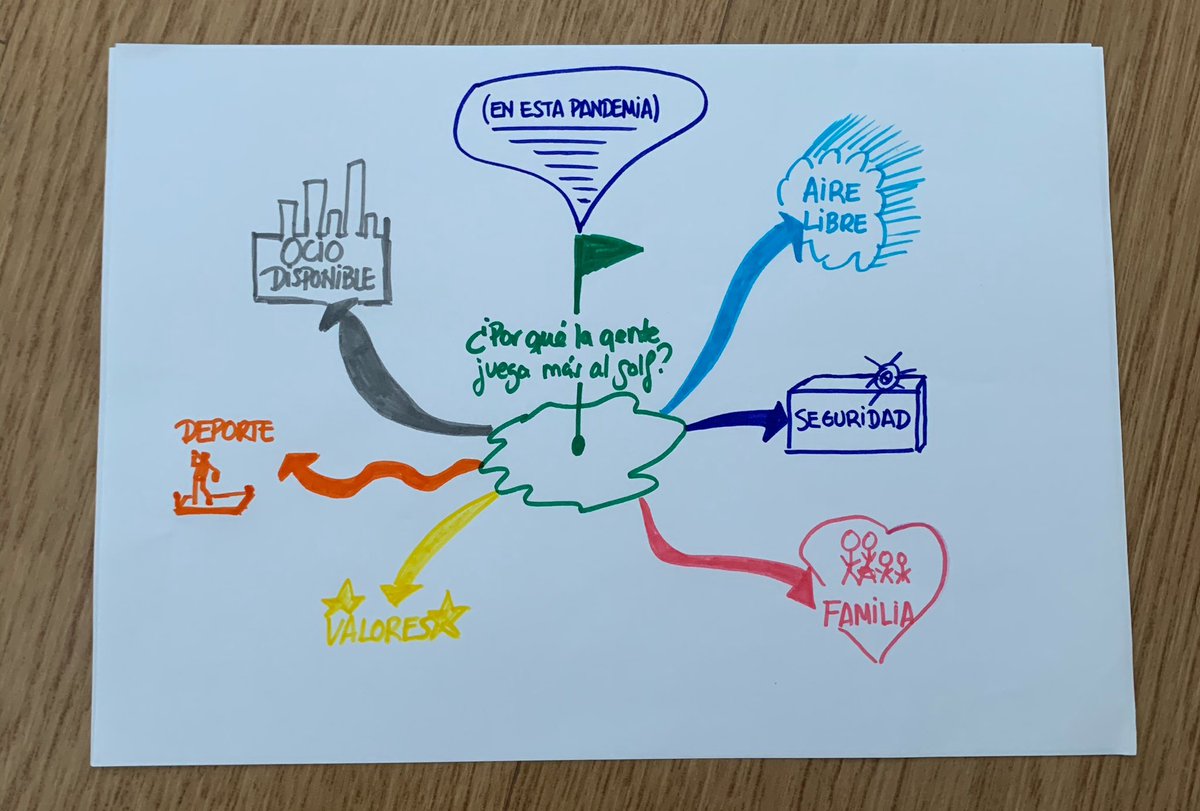 (EN ESTA PANDEMIA)
¿Por qué la gente
juega más al golf?
AIRE
LIBRE
SEGURIDAD
FAMILIA
VALORES
DEPORTE
OCIO
DISPONIBLE